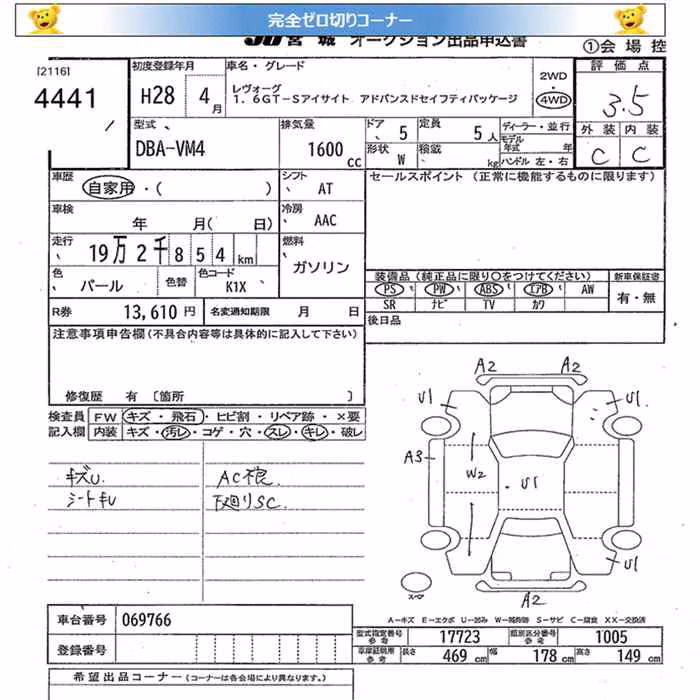 完全ゼロ切りコーナー
JU宮城 オークション出品申込書
①会場控
[2116]
4441
初度登録年月
H28 4月
車名・グレード
レヴォーグ
1.6GT-Sアイサイト アドバンスドセイフティパッケージ
2WD
・
4WD
評価点
3.5
外装 内装
C C
型式
DBA-VM4
排気量
1600cc
ドア 5
形状 W
定員 5人
積載 kg
ディーラー・並行
モデル年式 年
ハンドル 左・右
車歴
自家用・( )
シフト AT
セールスポイント (正常に機能するものに限ります)
車検
年 月( 日)
冷房 AAC
走行
19万2千854km
燃料 ガソリン
色 パール
色替
色コード K1X
装備品(純正品に限り○をつけてください)
新車保証書
PS PW ABS エアB AW
有・無
SR ナビ TV カワ
R券 13,610円
名変通知期限 月 日
後日品
注意事項申告欄(不具合内容等は具体的に記入して下さい)
修復歴 有 〔箇所 〕
検査員 FW キズ・飛石・ヒビ割・リペア跡・×要
記入欄 内装 キズ・汚レ・コゲ・穴・スレ・キレ・破レ
キズU.
シートキU
AC不良.
下廻りSC.
A2 A2
U1 U1
A3 W2 U1
U1
A2
スペア
A-キズ E-エクボ U-凹み W-補修跡 S-サビ C-腐食 XX-交換済
車台番号 069766
型式指定番号 参考 17723
類別区分番号 参考 1005
登録番号
車庫証明用 参考 長さ 469cm 幅 178cm 高さ 149cm
希望出品コーナー (コーナーは各会場により異なります。)